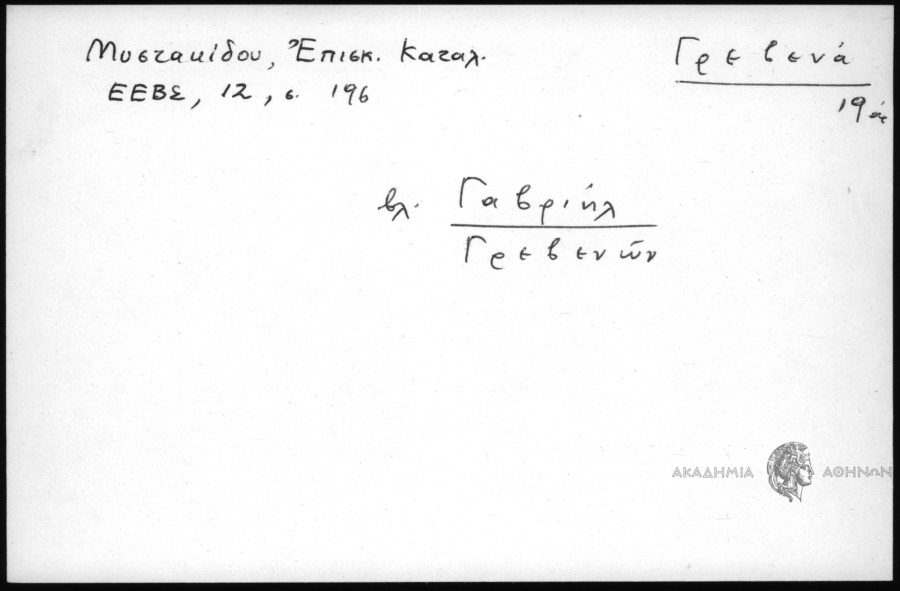 Μυστακίδου, Ἐπισκ. Καταλ.
ΕΕΒΣ, 12, σ. 196
Γρεβενά
19ος
βλ. Γαβριήλ
Γρεβενῶν
ΑΚΑΔΗΜΙΑ ΑΘΗΝΩΝ